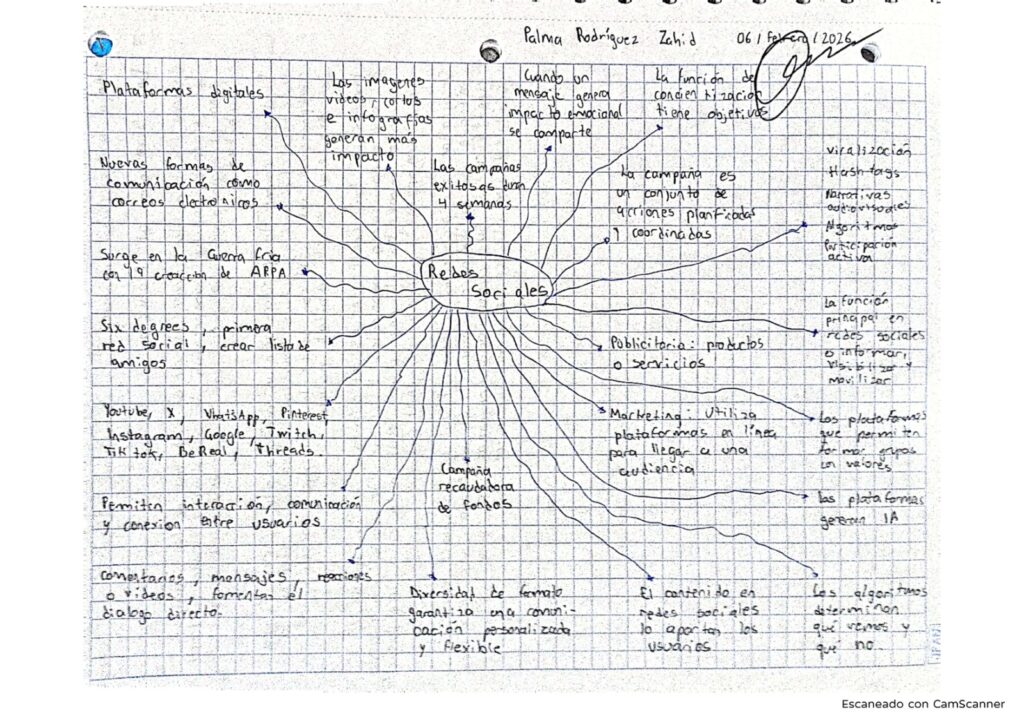 Palma Rodríguez Zahid 06 / Febrero / 2026
Plataformas digitales
Las imagenes
videos, cortos
e infografías
generan más
impacto
Cuando un
mensaje genera
impacto emocional
se comparte
La función de
concientización
tiene objetivos
Nuevas formas de
comunicación como
correos electronicos
Las campañas
exitosas duran
4 semanas
La campaña es
un conjunto de
acciones planificadas
y coordinadas
viralización
Hash tags
Narrativas
audiovisuales
Algoritmos
Participación
activa
Surge en la Guerra fria
con la creacción de ARPA
Redes
Sociales
Six degrees, primera
red social, crear lista de
amigos
Publicitaria: productos
o servicios
La función
principal en
redes sociales
informar,
visibilizar y
movilizar
Youtube, X, WhatsApp, Pinterest,
Instagram, Google, Twitch,
Tik tok, BeReal, Threads.
Marketing: Utiliza
plataformas en línea
para llegar a una
audiencia
Las plataformas
que permiten
formar grupos
con valores
Campaña
recaudadora
de fondos
Permiten interacción, comunicación
y conexion entre usuarios
las plataformas
generan IA
comentarios, mensajes, reacciones
o videos, fomentar el
dialogo directo.
Diversidad de formato
garantiza una comuni-
cación personalizada
y flexible
El contenido en
redes sociales
lo aportan los
usuarios
Los algoritmos
determinan
qué vemos y
que no.
Escaneado con CamScanner